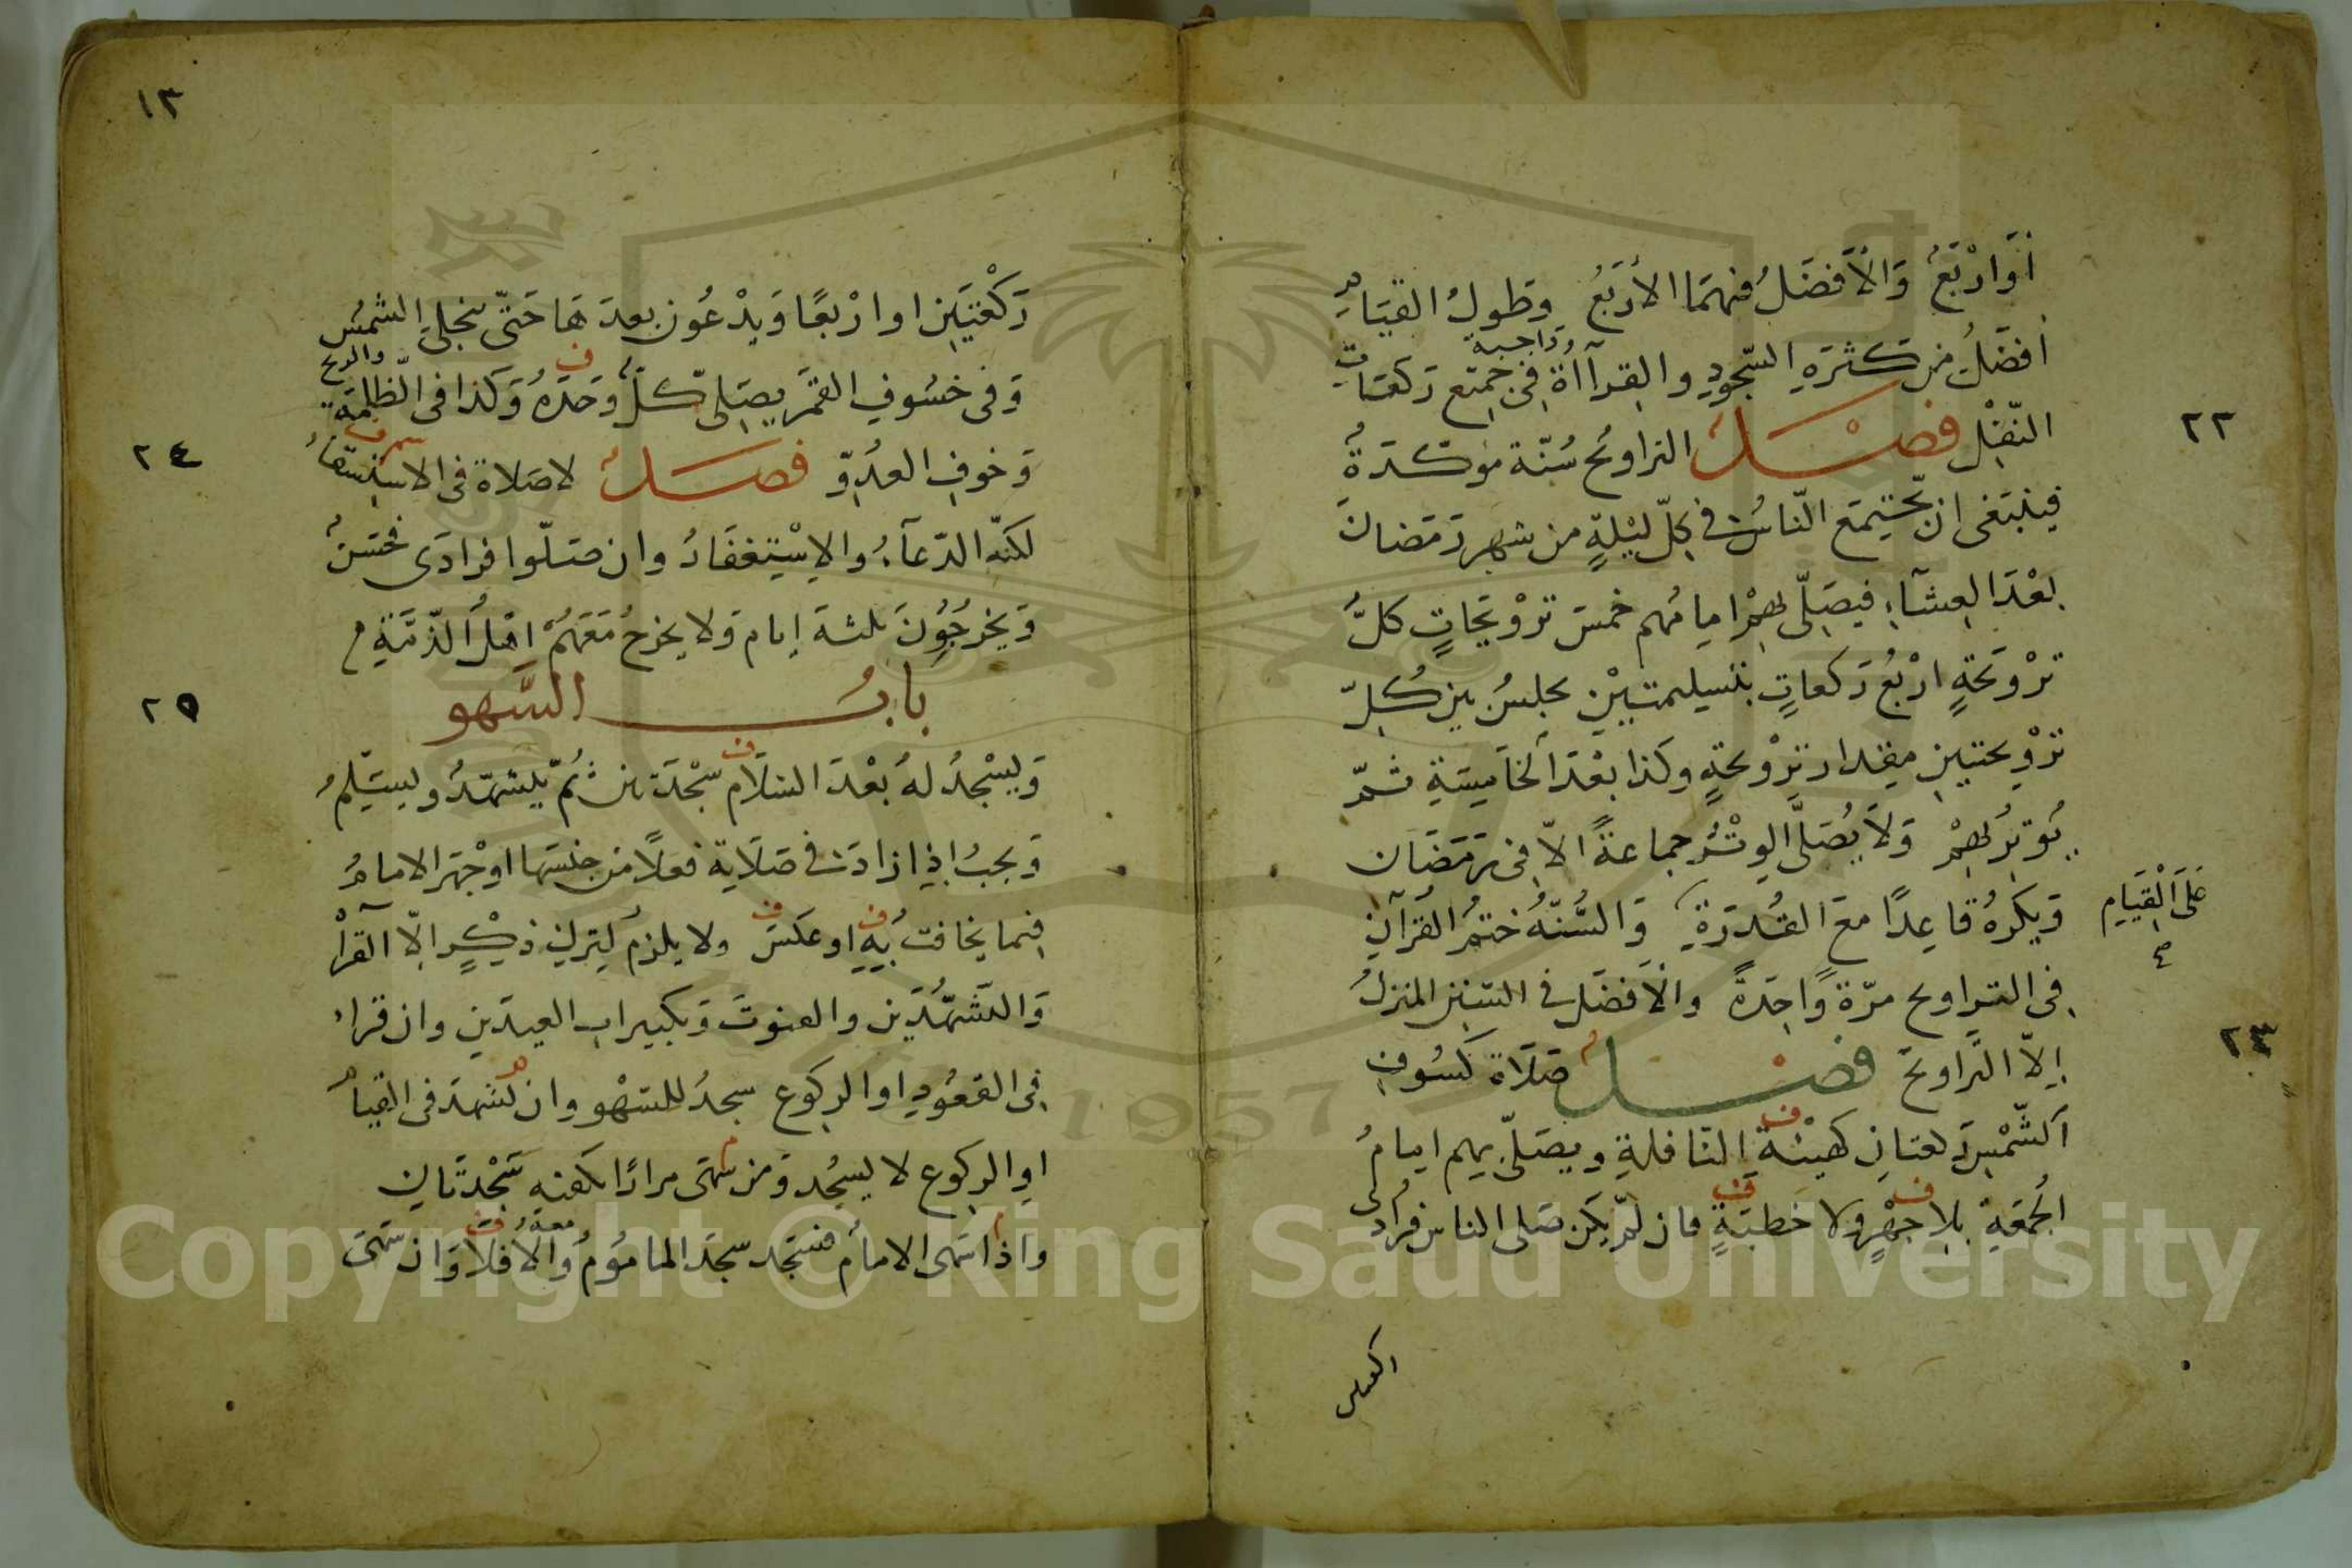 اَوْ ارْبَعُ وَالْاَفضَلُ فيهمَا الاْربَعُ وَطولُ القيَامِ
افضَلُ من كثرَةِ السّجودِ والقِرآاةُ وَاجبة فِى جَميع رَكعَات
النّفْلِ فصْلٌ التراويحُ سُنّة مؤكدَةٌ
٢٢
فينبَغى ان يّجتمِعَ النّاسُ فى كلّ ليْلةٍ من شهر رَمَضانَ
بعْدَ العِشَآءِ فيصَلّى بهِمْ امامُهم خمسَ ترْويحَاتٍ كلُّ
ترْويحَةٍ ارْبعُ رَكعاتٍ بتسليمتَيْنِ يجلسُ بين كُلِّ
ترْويحتينِ مقدار ترْويحَةٍ وكذا بعْدَ الْخامِسَةِ ثمّ
يُوتِرُ بهِمْ وَلاَ يُصَلَّى الوِتْرُ جماعةً الاّ فِى رَمَضَان
وَيكرهُ قاعِدًا معَ القُدرَةِ عَلَى الْقِيَامِ وَالسُّنّةُ ختمُ القُرْآنِ
فِى التراويح مرّةً وَاحِدَةً والاَفضَل فى السّنن المنزلُ
اِلاّ التَراويحَ فصْلٌ صَلَاة كسُوفِ
٢٣
اَلشّمْسِ رَكعتانِ كهيْئَةِ النّافلةِ ويصَلّى بهم امامُ
الجُمعَةِ بلا جهْرٍ ولا خطبَةٍ فان لمْ يكن صَلى الناس فرادى
ركعتين
١٣
رَكْعتَيَنِ او ارْبعًا وَيدْعُون بعدَهَا حَتّى ينجلِي الشمسُ
وَفى خسُوفِ القمَرِ يصَلِى كلٌّ وَحدَهُ وَكذا فى الظلمَة والريح
وَخوفِ العدُوِّ فصَلٌ لاصَلاة فى الاسْتسقَاءِ
٢٤
لكنّه الدّعآءُ والاِسْتِغفَارُ وان صَلّوا فرَادَى فحَسَنٌ
وَيَخرُجُونَ ثلثة ايام وَلا يخرجُ مَعَهُمْ اهْلُ الذّمّةِ م
بابُ السَّهو
٢٥
وَيسْجُدُ لهُ بعْدَ السّلاَمِ سجْدَتين ثُمّ يتشهّدُ ويسَلِمُ
وَيجبُ اِذا زادَ فى صَلَاتِهِ فعلًا من جنسهَا اوْجهَرَ الامامُ
فيما يخافتُ بهِ اوعكسَ ولا يلزمُ لِتركِ ذِكْرٍ اِلّا القرآءْ
وَالتشهّدَيْنِ والقنوتَ وَتكبيراتِ العيدَينِ وان قراء
فِى القعُودِ او الركوعِ سجدُ للسَهْو وان تشهدَ فى القيَامِ
اوِ الركوع لا يسجُد وَمن سَهى مرارًا تكفيهِ سَجْدَتانِ
وَاذا سَهى الامامُ فسَجَد سجَدَ المامُومُ معهُ وَالا فلا وَان سَهَى
Copyright © King Saud University
1957